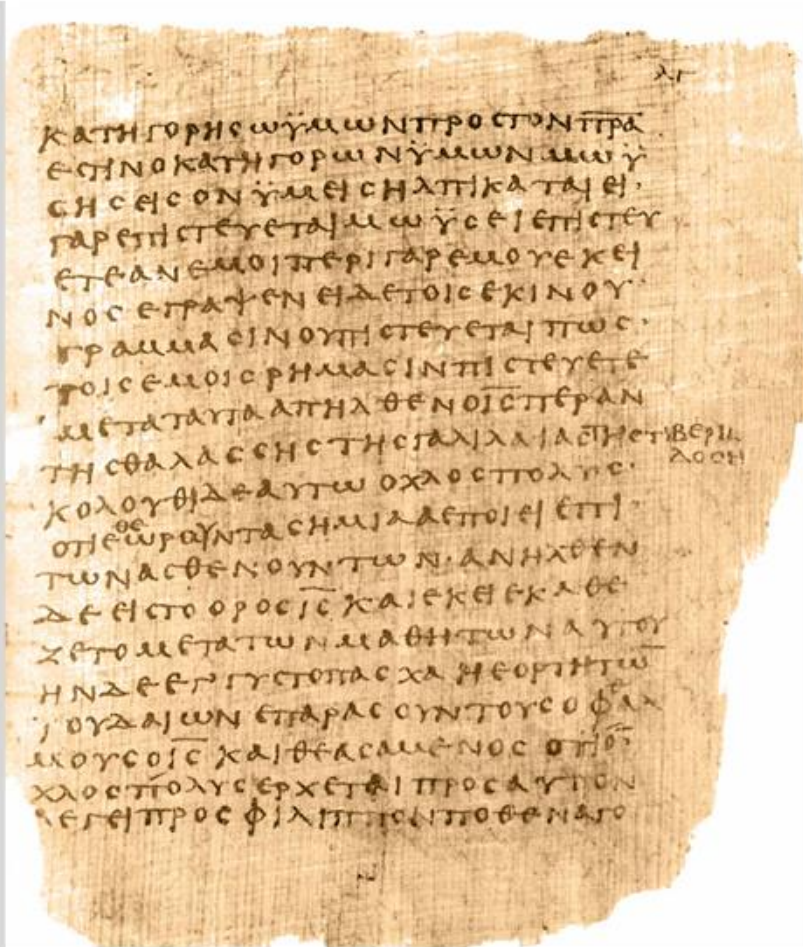 ΛΓ
ΚΑΤΗΓΟΡΗϹΩ ΫΜΩΝ ΠΡΟϹ ΤΟΝ Π̅Ρ̅Α̅
ΕϹΤΙΝ Ο ΚΑΤΗΓΟΡΩΝ ΫΜΩΝ ΜΩΫ
ϹΗϹ ΕΙϹ ΟΝ ΫΜΕΙϹ ΗΛΠΙΚΑΤΑΙ ΕΙ·
ΓΑΡ ΕΠΙϹΤΕΥΕΤΑΙ ΜΩΫϹΕΙ ΕΠΙϹΤΕΥ
ΕΤΕ ΑΝ ΕΜΟΙ ΠΕΡΙ ΓΑΡ ΕΜΟΥ ΕΚΕΙ
ΝΟϹ ΕΓΡΑΨΕΝ ΕΙ ΔΕ ΤΟΙϹ ΕΚΙΝΟΥ·
ΓΡΑΜΜΑϹΙΝ ΟΥ ΠΙϹΤΕΥΕΤΑΙ ΠΩϹ·
ΤΟΙϹ ΕΜΟΙϹ ΡΗΜΑϹΙΝ ΠΙϹΤΕΥΕΤΕ
ΜΕΤΑ ΤΑΥΤΑ ΑΠΗΛΘΕΝ Ο Ι̅Ϲ̅ ΠΕΡΑΝ
ΤΗϹ ΘΑΛΑϹϹΗϹ ΤΗϹ ΓΑΛΙΛΑΙΑϹ ΤΗϹ ΤΙΒΕΡΙΑ
ΔΟϹ Η
ΚΟΛΟΥΘΙ ΔΕ ΑΥΤΩ ΟΧΛΟϹ ΠΟΛΥϹ·
ΟΤΙ ΕΘΕΩΡΟΥΝ ΤΑ ϹΗΜΙΑ Α ΕΠΟΙΕΙ ΕΠΙ·
ΤΩΝ ΑϹΘΕΝΟΥΝΤΩΝ· ΑΝΗΛΘΕΝ
ΔΕ ΕΙϹ ΤΟ ΟΡΟϹ Ι̅Ϲ̅ ΚΑΙ ΕΚΕΙ ΕΚΑΘΕ
ΖΕΤΟ ΜΕΤΑ ΤΩΝ ΜΑΘΗΤΩΝ ΑΥΤΟΥ
ΗΝ ΔΕ ΕΓΓΥϹ ΤΟ ΠΑϹΧΑ Η ΕΟΡΤΗ ΤΩ̅
ΙΟΥΔΑΙΩΝ ΕΠΑΡΑϹ ΟΥΝ ΤΟΥϹ ΟΦΘΑΛ
ΜΟΥϹ Ο Ι̅Ϲ̅ ΚΑΙ ΘΕΑϹΑΜΕΝΟϹ ΟΤΙ Ο·
ΧΛΟϹ ΠΟΛΥϹ ΕΡΧΕΤΑΙ ΠΡΟϹ ΑΥΤΟΝ
ΛΕΓΕΙ ΠΡΟϹ ΦΙΛΙΠΠΟΝ ΠΟΘΕΝ ΑΓΟ